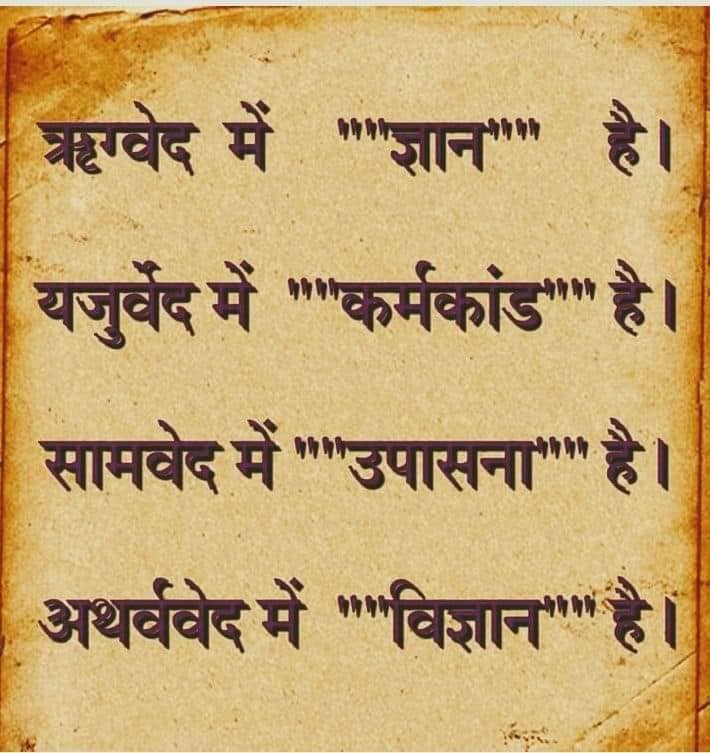 ऋग्वेद में """"ज्ञान"""" है।
यजुर्वेद में """"कर्मकांड"""" है।
सामवेद में """"उपासना"""" है।
अथर्ववेद में """"विज्ञान"""" है।